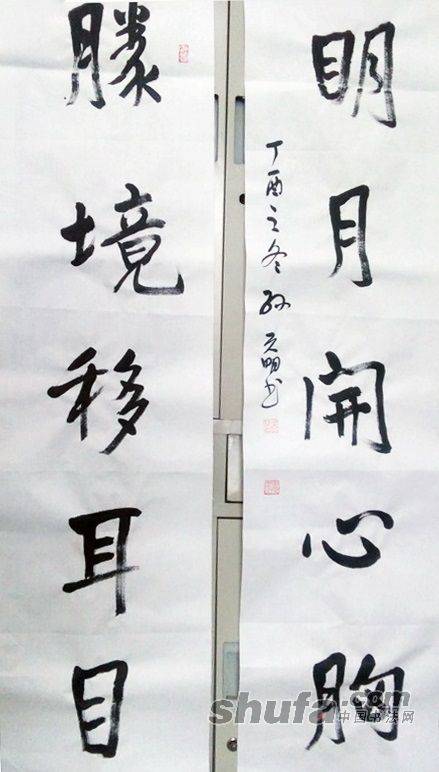 勝境移耳目
明月開心胸
丁酉之冬 孙明书
shufa.com
中国书法网